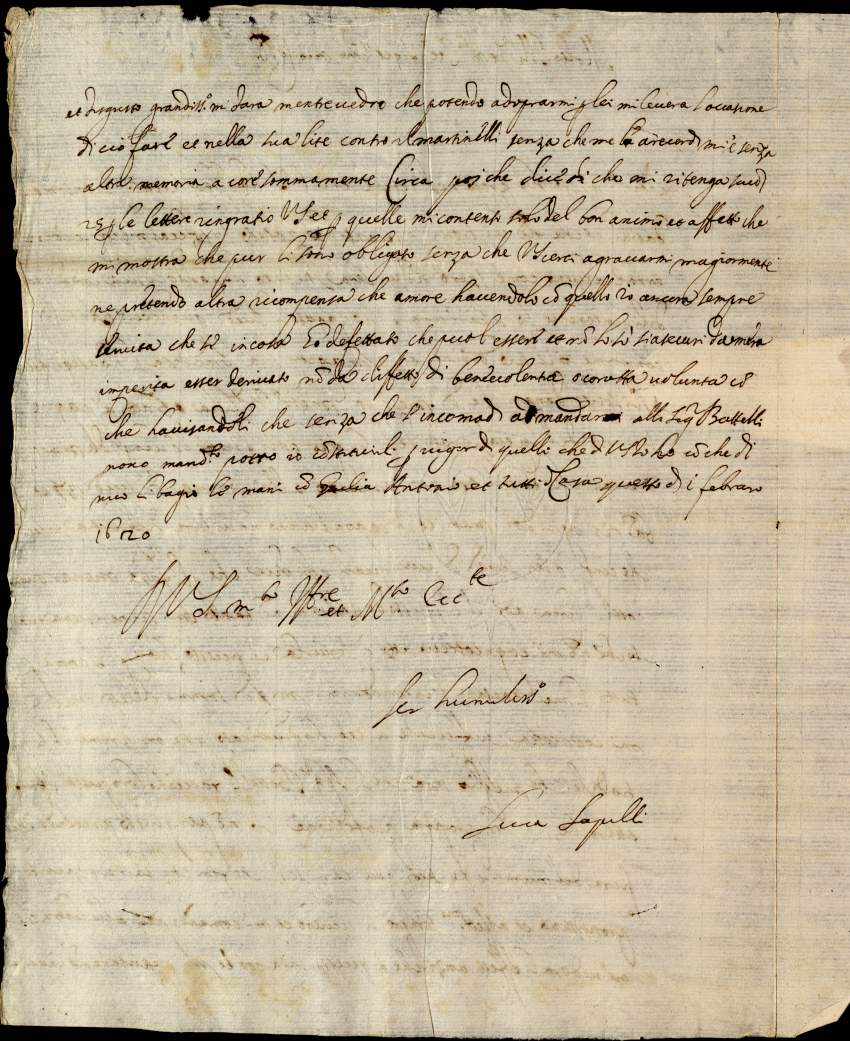 et disgusto grandiss.o mi dara mentre vedrò che potendo adoprarmi p lei mi levera l occasione
di ciò fare et nella sua lite contro il martinelli senza che me la arecordi mi è senza
altra memoria a core sommamente Circa poi che dice di che mi ritenga
p le lettere ringratio VS et p quelle mi contento solo del bon animo et affetto che
mi mostra che pur li sono obligato senza che VS cerci agravarmi magiormente
ne pretendo altra ricompensa che amore havendolo cō quello io ancora sempre
servita che se in cosa ho defettato che puol essere et nō lo so siate sicuri da mera
imperitia esser derivato nō da diffetto di benevolentia o corotta volunta cō
che havisandoli che senza che s incomodi a mandare alli Sig.ri Battelli
novo mand.to posso io p vigor di quello che di VS ho cō che di
novo li bagio le mani cō Antonio et tutti di Casa questo di i febraro
1620
D V S m.to Ill.re et M.to Ecc.te
Ser humiliss.o
Luca Sapilli